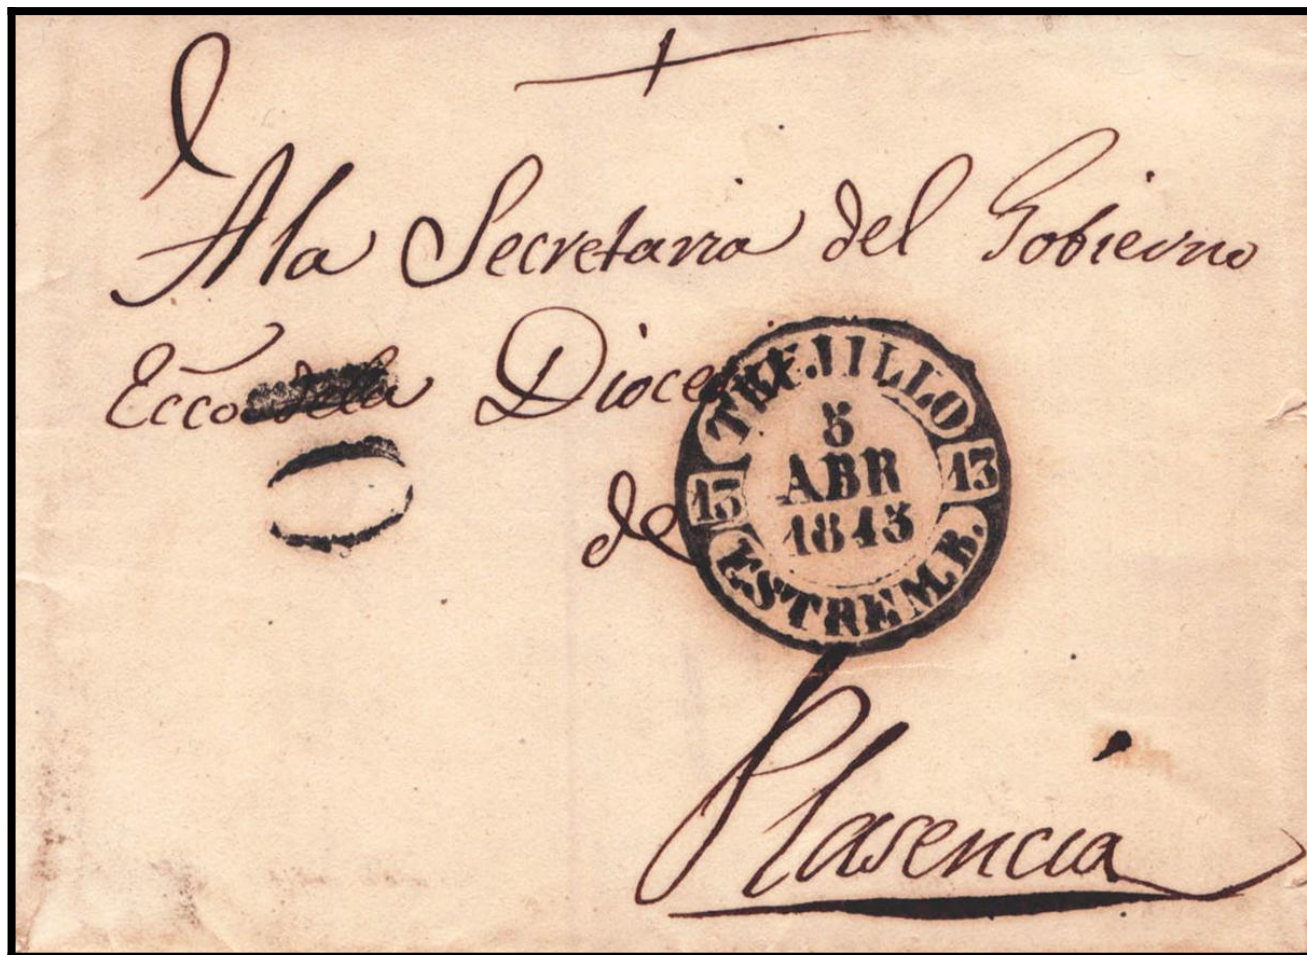 A la Secretaria del Gobierno
Ecco. de la Diocesi
de
TRUJILLO
5
ABR
1845
13 13
ESTREM.B.
Plasencia